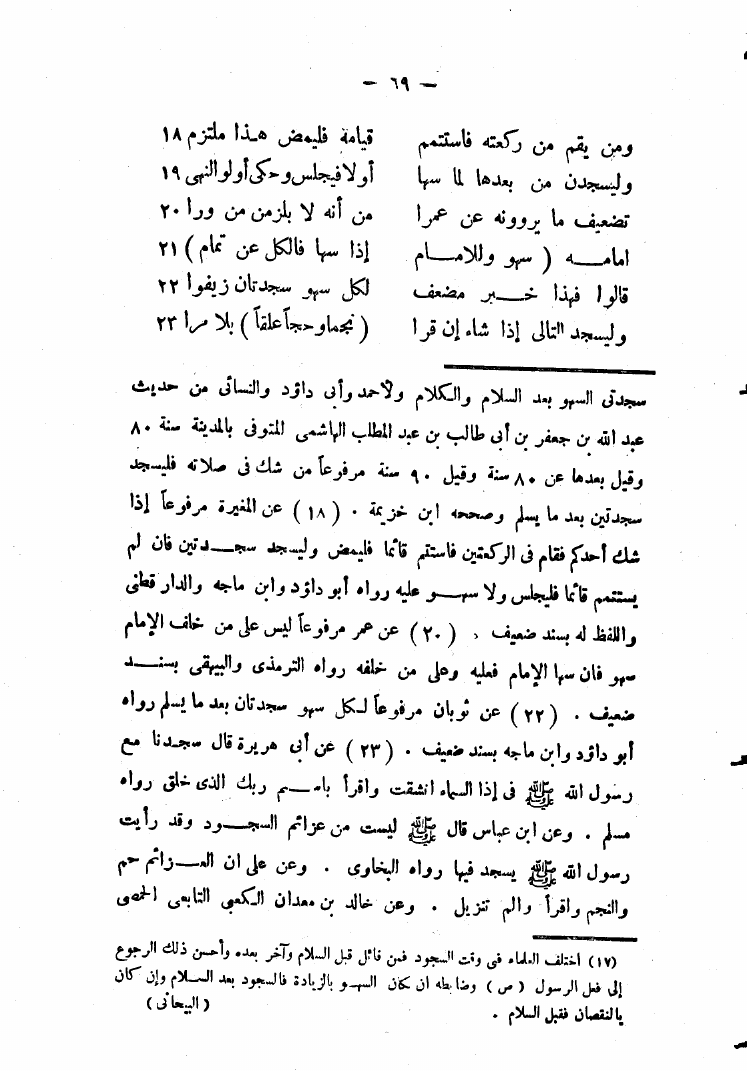 — ٦٩ —
ومن يقم من ركعته فاستتمم قيامة فليمض هـذا ملتزم ١٨
وليسجدن من بعدها لما سها أولا فيجلس وحكى أولو النهى ١٩
تضعيف ما يروونه عن عمرا من أنه لا يلزمن من ورا ٢٠
امامـــه ( سهو وللامـــام إذا سها فالكل عن تمام ) ٢١
قالوا فهذا خـــبر مضعف لكل سهو سجدتان زيفوا ٢٢
وليسجد التالى إذا شاء إن قرا ( نجما وحجاً علقاً ) بلا مرا ٢٣
سجدتى السهو بعد السلام والكلام ولأحمد وأبى داؤد والنسائى من حديث
عبد الله بن جعفر بن أبى طالب بن عبد المطلب الهاشمى المتوفى بالمدينة سنة ٨٠
وقيل بعدها عن ٨٠ سنة وقيل ٩٠ سنة مرفوعاً من شك فى صلاته فليسجد
سجدتين بعد ما يسلم وصححه ابن خزيمة . ( ١٨ ) عن المغيرة مرفوعاً إذا
شك أحدكم فقام فى الركعتين فاستتم قائما فليمض وليسجد سجـــدتين فان لم
يستتمم قائما فليجلس ولا سهـــو عليه رواه أبو داؤد وابن ماجه والدار قطنى
واللفظ له بسند ضعيف . ( ٢٠ ) عن عمر مرفوعاً ليس على من خلف الإمام
سهو فان سها الإمام فعليه وعلى من خلفه رواه الترمذى والبيهقى بسنـــد
ضعيف . ( ٢٢ ) عن ثوبان مرفوعاً لكل سهو سجدتان بعد ما يسلم رواه
أبو داؤد وابن ماجه بسند ضعيف . ( ٢٣ ) عن أبى هريرة قال سجـدنا مع
رسول الله ﷺ فى إذا السماء انشقت واقرأ باسـم ربك الذى خلق رواه
مسلم . وعن ابن عباس قال ﷺ ليست من عزائم السجـــود وقد رأيت
رسول الله ﷺ يسجد فيها رواه البخاوى . وعن على ان العـــزائم حم
والنجم واقرأ والم تنزيل . وعن خالد بن معدان الكعبى التابعى الحمصى
(١٧) اختلف العلماء فى وقت السجود فمن قائل قبل السلام وآخر بعده وأحسن ذلك الرجوع
إلى فعل الرسول ( ص ) وضابطه ان كان السهـو بالزيادة فالسجود بعد السـلام وإن كان
بالنقصان فقبل السلام . ( البيحانى )